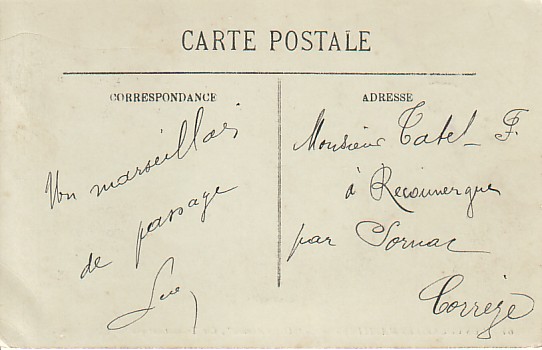 CARTE POSTALE
CORRESPONDANCE
Un marseillais
de passage
Luc
ADRESSE
Monsieur Tatel F.
à
par Sornac
Corrèze